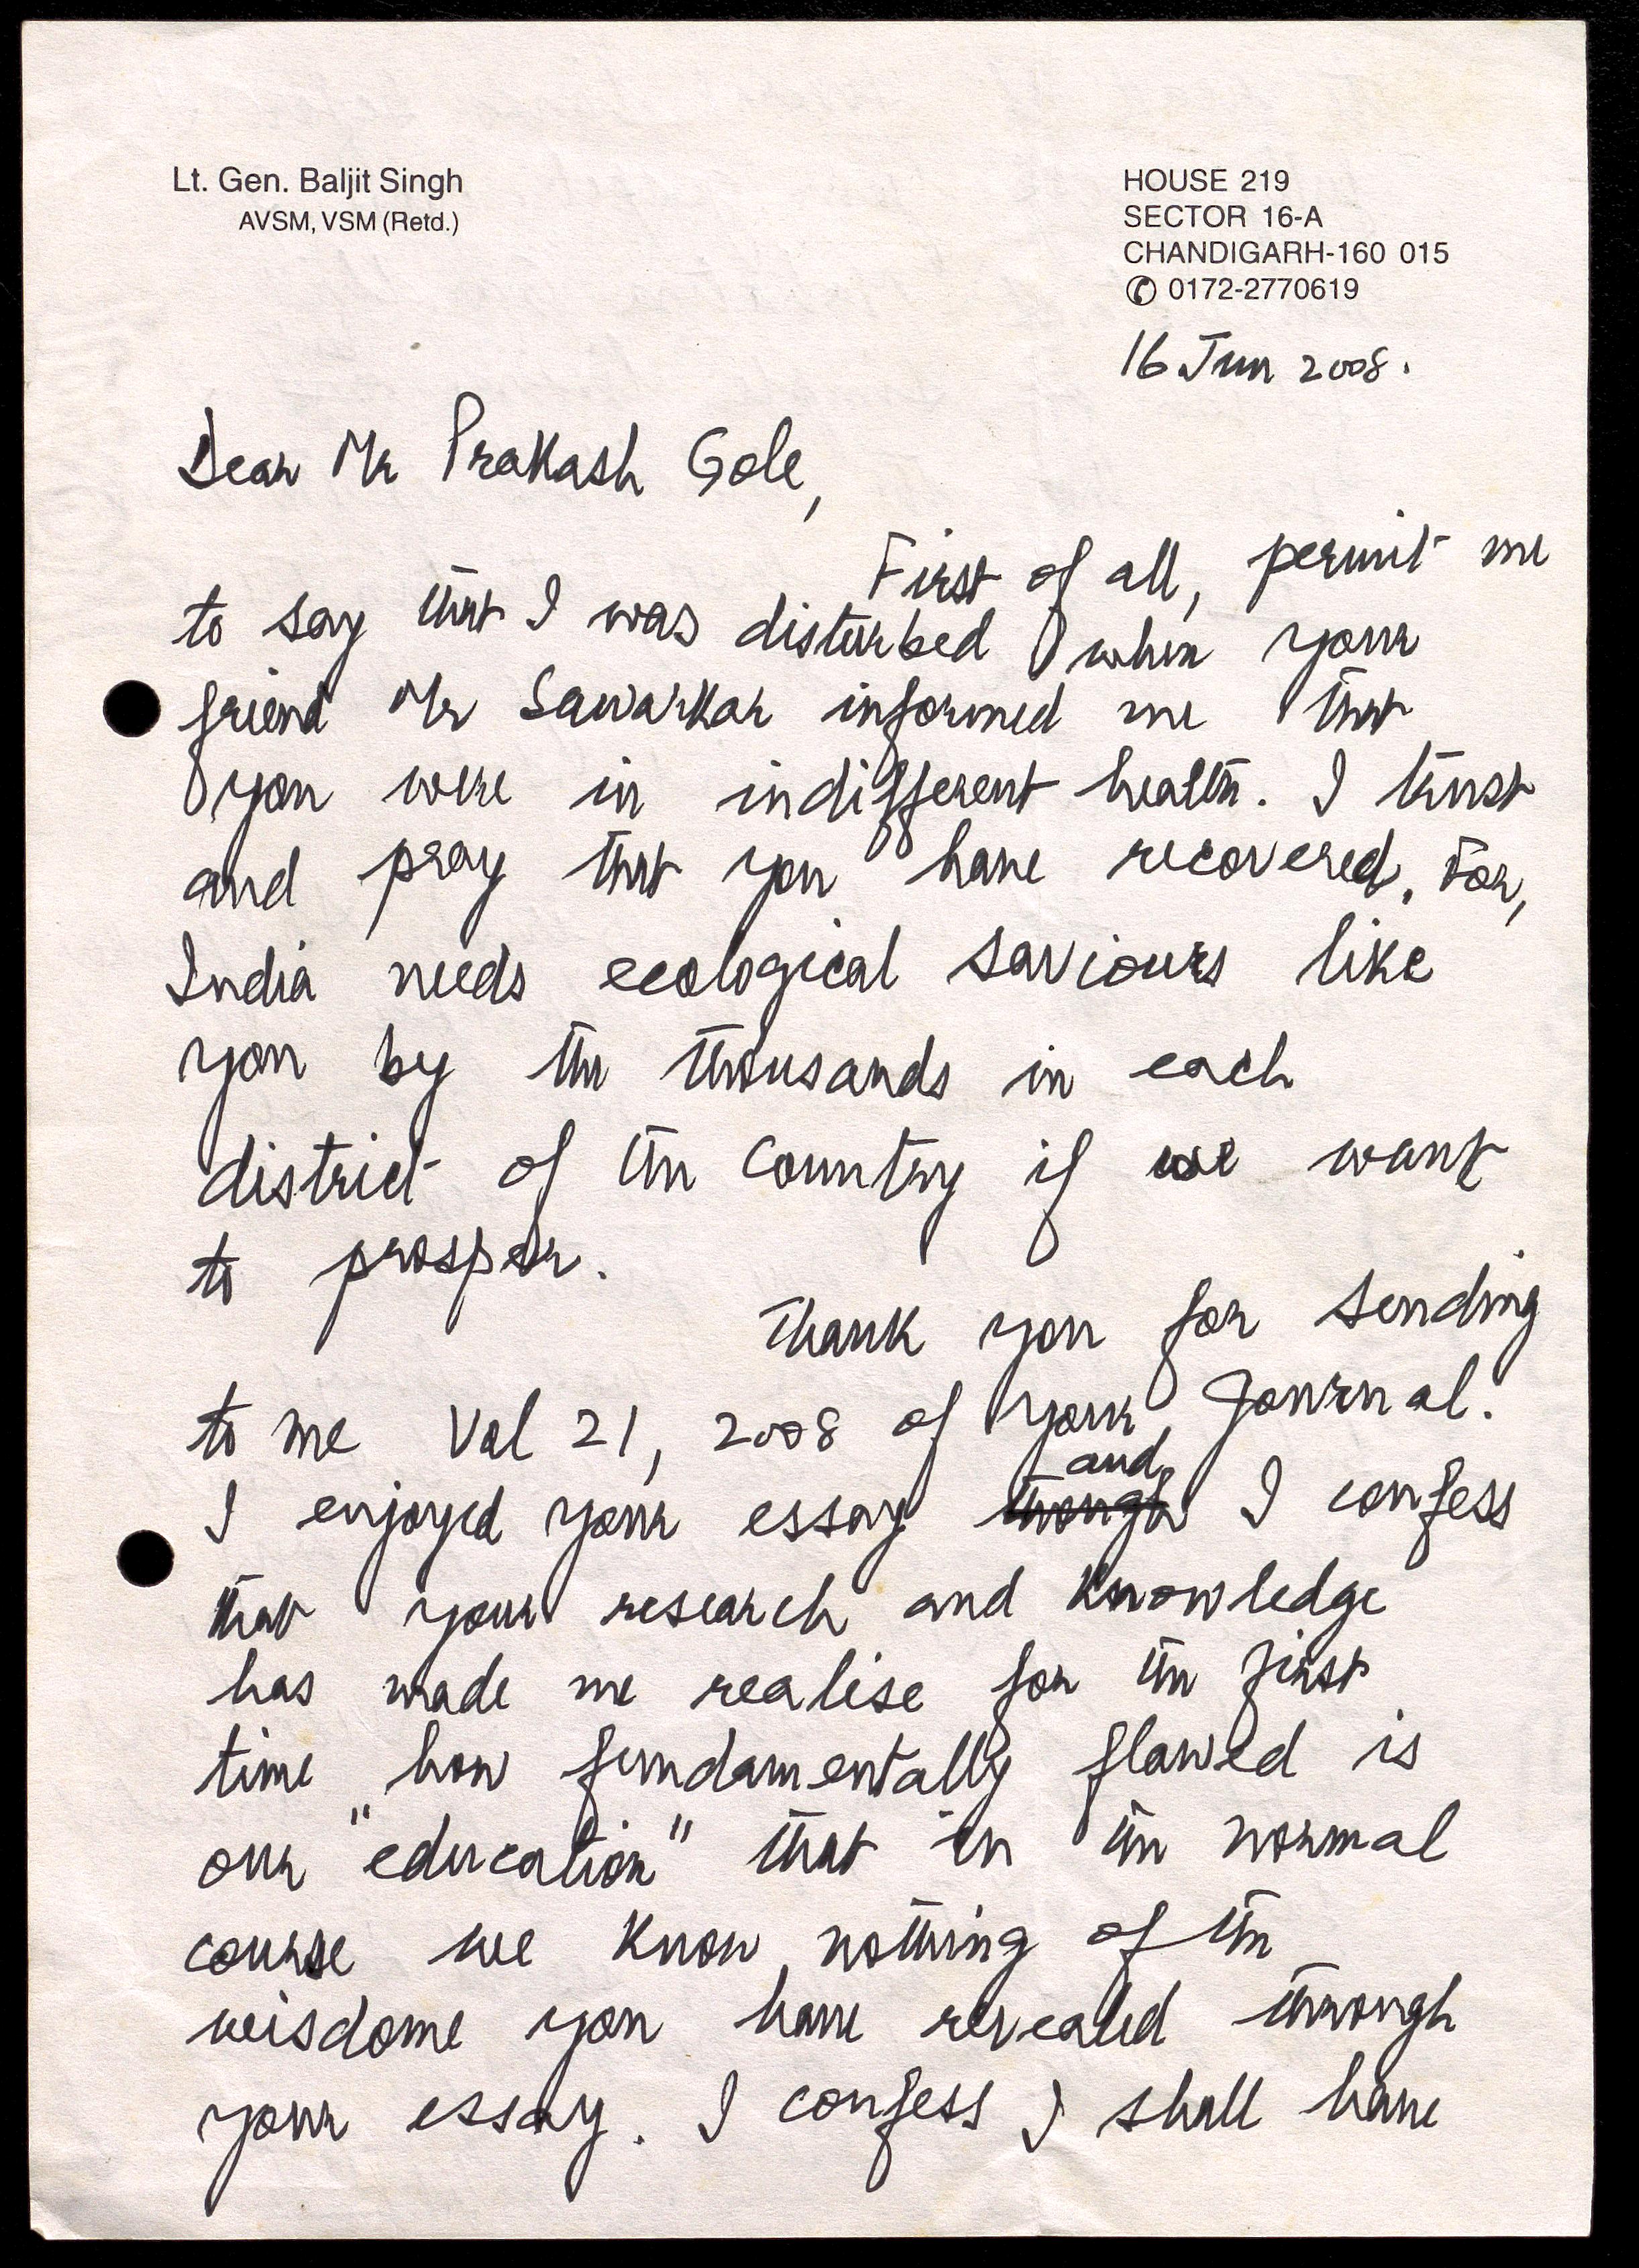 Lt. Gen. Baljit Singh
AVSM, VSM (Retd.)
HOUSE 219
SECTOR 16-A
CHANDIGARH-160 015
✆ 0172-2770619
16 Jun 2008.
Dear Mr Prakash Gole,
First of all, permit me
to say that I was disturbed when your
friend Mr Sawarkar informed me that
you were in indifferent health. I trust
and pray that you have recovered. For,
India needs ecological saviours like
you by the thousands in each
district of the country if we want
to prosper.
Thank you for sending
to me Vol 21, 2008 of your Journal.
and
I enjoyed your essay though I confess
that your research and knowledge
has made me realise for the first
time how fundamentally flawed is
our "education" that in the normal
course we know nothing of the
wisdome you have revealed through
your essay. I confess I shall have